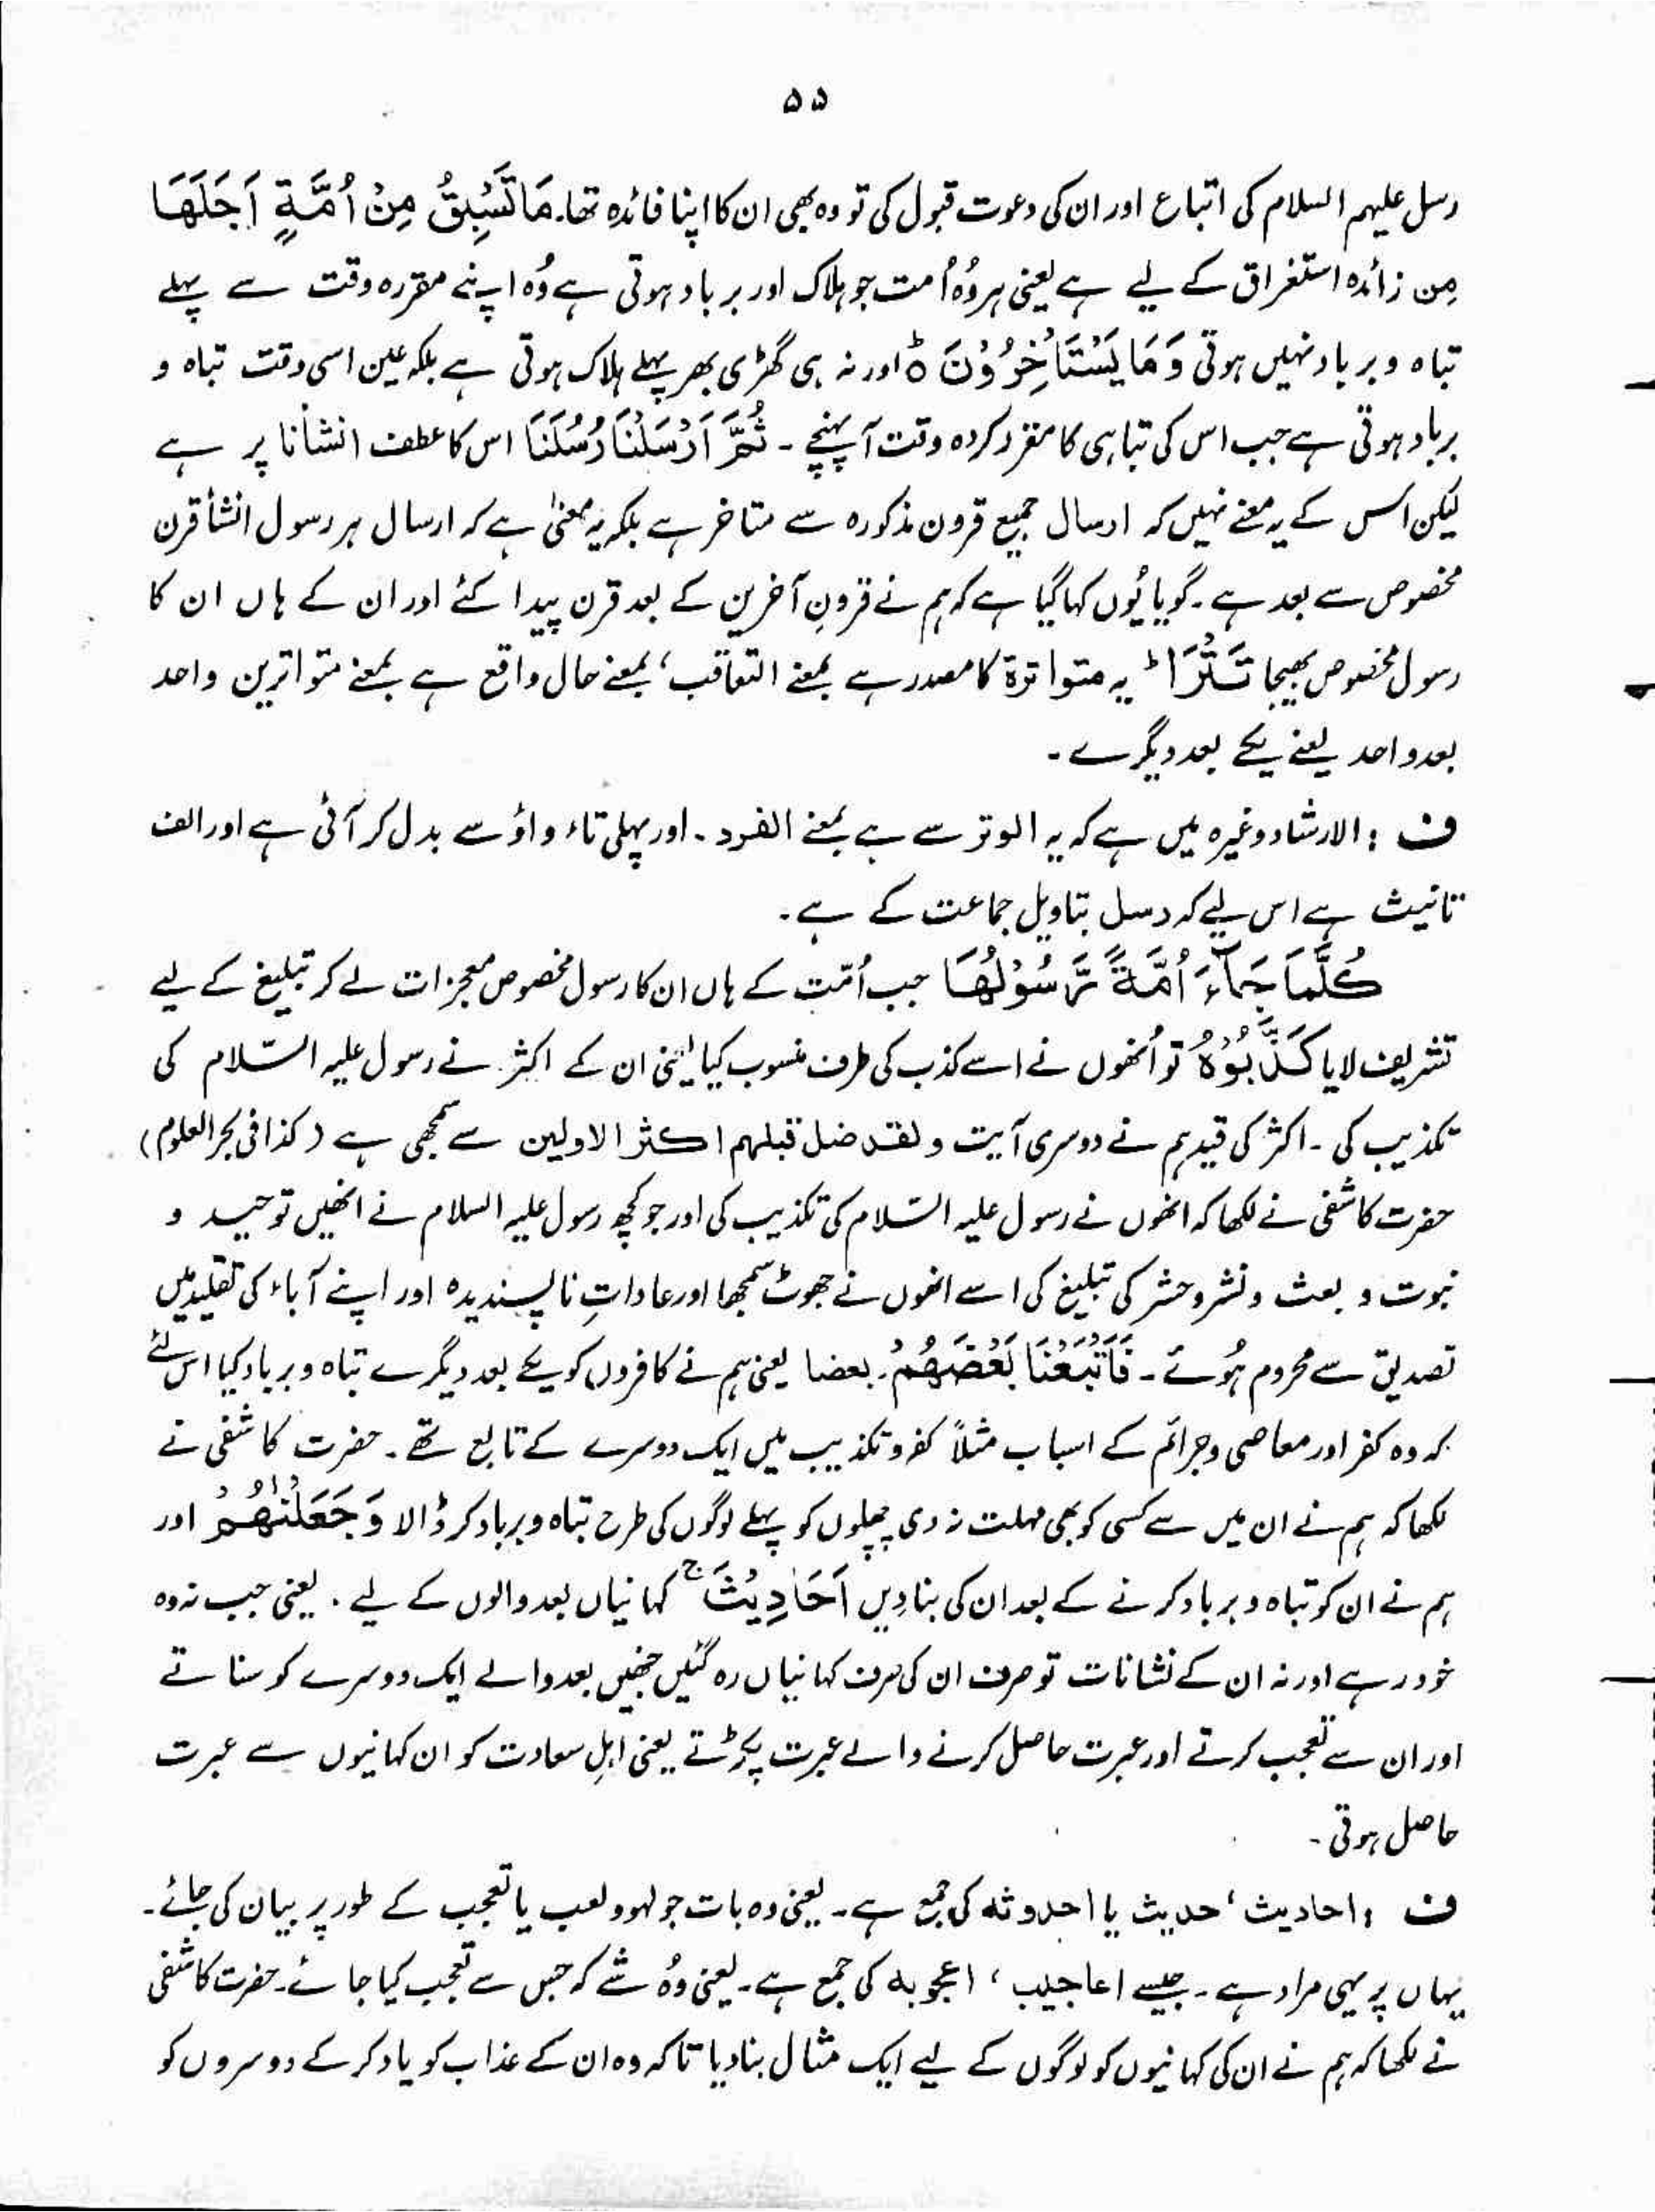 ۵۵
رسل علیہم السلام کی اتباع اور ان کی دعوت قبول کی تو وہ بھی ان کا اپنا فائدہ تھا۔ مَا تَسْبِقُ مِنْ اُمَّةٍ اَجَلَهَا
مِن زائدہ استغراق کے لیے ہے یعنی ہر وُہ اُمت جو ہلاک اور برباد ہوتی ہے وُہ اپنے مقررہ وقت سے پہلے
تباہ و برباد نہیں ہوتی وَ مَا يَسْتَاْخِرُوْنَ ؕ اور نہ ہی گھڑی بھر پہلے ہلاک ہوتی ہے بلکہ عین اسی وقت تباہ و
برباد ہوتی ہے جب اس کی تباہی کا مقرر کردہ وقت آ پہنچے ۔ ثُمَّ اَرْسَلْنَا رُسُلَنَا اس کا عطف انشأنا پر ہے
لیکن اس کے یہ معنے نہیں کہ ارسال جمیع قرون مذکورہ سے متاخر ہے بلکہ یہ معنیٰ ہے کہ ارسال ہر رسول انشأ قرن
مخصوص سے بعد ہے ۔ گویا یُوں کہا گیا ہے کہ ہم نے قرونِ آخرین کے بعد قرن پیدا کئے اور ان کے ہاں ان کا
رسول مخصوص بھیجا تَـتْرَاؕ یہ متواترۃ کا مصدر ہے بمعنے التعاقب، بمعنے حال واقع ہے بمعنے متواترین واحد
بعد واحد یعنے یکے بعد دیگرے ۔
ف : الارشاد وغیرہ میں ہے کہ یہ الوتر سے ہے بمعنے الفرد ۔ اور پہلی تاء واؤ سے بدل کر آئی ہے اور الف
تانیث ہے اس لیے کہ رسل بتاویل جماعت کے ہے ۔
كُلَّمَا جَآءَ اُمَّةً رَّسُوْلُهَا جب اُمّت کے ہاں ان کا رسول مخصوص معجزات لے کر تبلیغ کے لیے
تشریف لایا كَذَّبُوْهُ تو اُنھوں نے اسے کذب کی طرف منسوب کیا یعنی ان کے اکثر نے رسول علیہ السّلام کی
تکذیب کی ۔ اکثر کی قید ہم نے دوسری آیت ولقد ضل قبلهم اكثر الاولين سے سمجھی ہے (کذا فی بحر العلوم)
حضرت کاشفی نے لکھا کہ انھوں نے رسول علیہ السّلام کی تکذیب کی اور جو کچھ رسول علیہ السلام نے انھیں توحید و
نبوت و بعث و نشر و حشر کی تبلیغ کی اسے انھوں نے جھوٹ سمجھا اور عاداتِ ناپسندیدہ اور اپنے آباء کی تقلید میں
تصدیق سے محروم ہُوئے ۔ فَاَتْبَعْنَا بَعْضَهُمْ بعضا یعنی ہم نے کافروں کو یکے بعد دیگرے تباہ و برباد کیا اس لئے
کہ وہ کفر اور معاصی و جرائم کے اسباب مثلاً کفر و تکذیب میں ایک دوسرے کے تابع تھے ۔ حضرت کاشفی نے
لکھا کہ ہم نے ان میں سے کسی کو بھی مہلت نہ دی پچھلوں کو پہلے لوگوں کی طرح تباہ و برباد کر ڈالا وَجَعَلْنٰهُمْ اور
ہم نے ان کو تباہ و برباد کرنے کے بعد ان کی بنا دیں اَحَادِيْثَ ۚ کہانیاں بعد والوں کے لیے ۔ یعنی جب نہ وہ
خود رہے اور نہ ان کے نشانات تو صرف ان کی صرف کہانیاں رہ گئیں جنھیں بعد والے ایک دوسرے کو سناتے
اور ان سے تعجب کرتے اور عبرت حاصل کرنے والے عبرت پکڑتے یعنی اہلِ سعادت کو ان کہانیوں سے عبرت
حاصل ہوتی ۔
ف : احادیث ، حدیث یا احدوثہ کی جمع ہے ۔ یعنی وہ بات جو لہو و لعب یا تعجب کے طور پر بیان کی جائے ۔
یہاں پر یہی مراد ہے ۔ جیسے اعاجیب ، اعجوبہ کی جمع ہے ۔ یعنی وُہ شے کہ جس سے تعجب کیا جائے ۔ حضرت کاشفی
نے لکھا کہ ہم نے ان کی کہانیوں کو لوگوں کے لیے ایک مثال بنا دیا تا کہ وہ ان کے عذاب کو یاد کر کے دوسروں کو